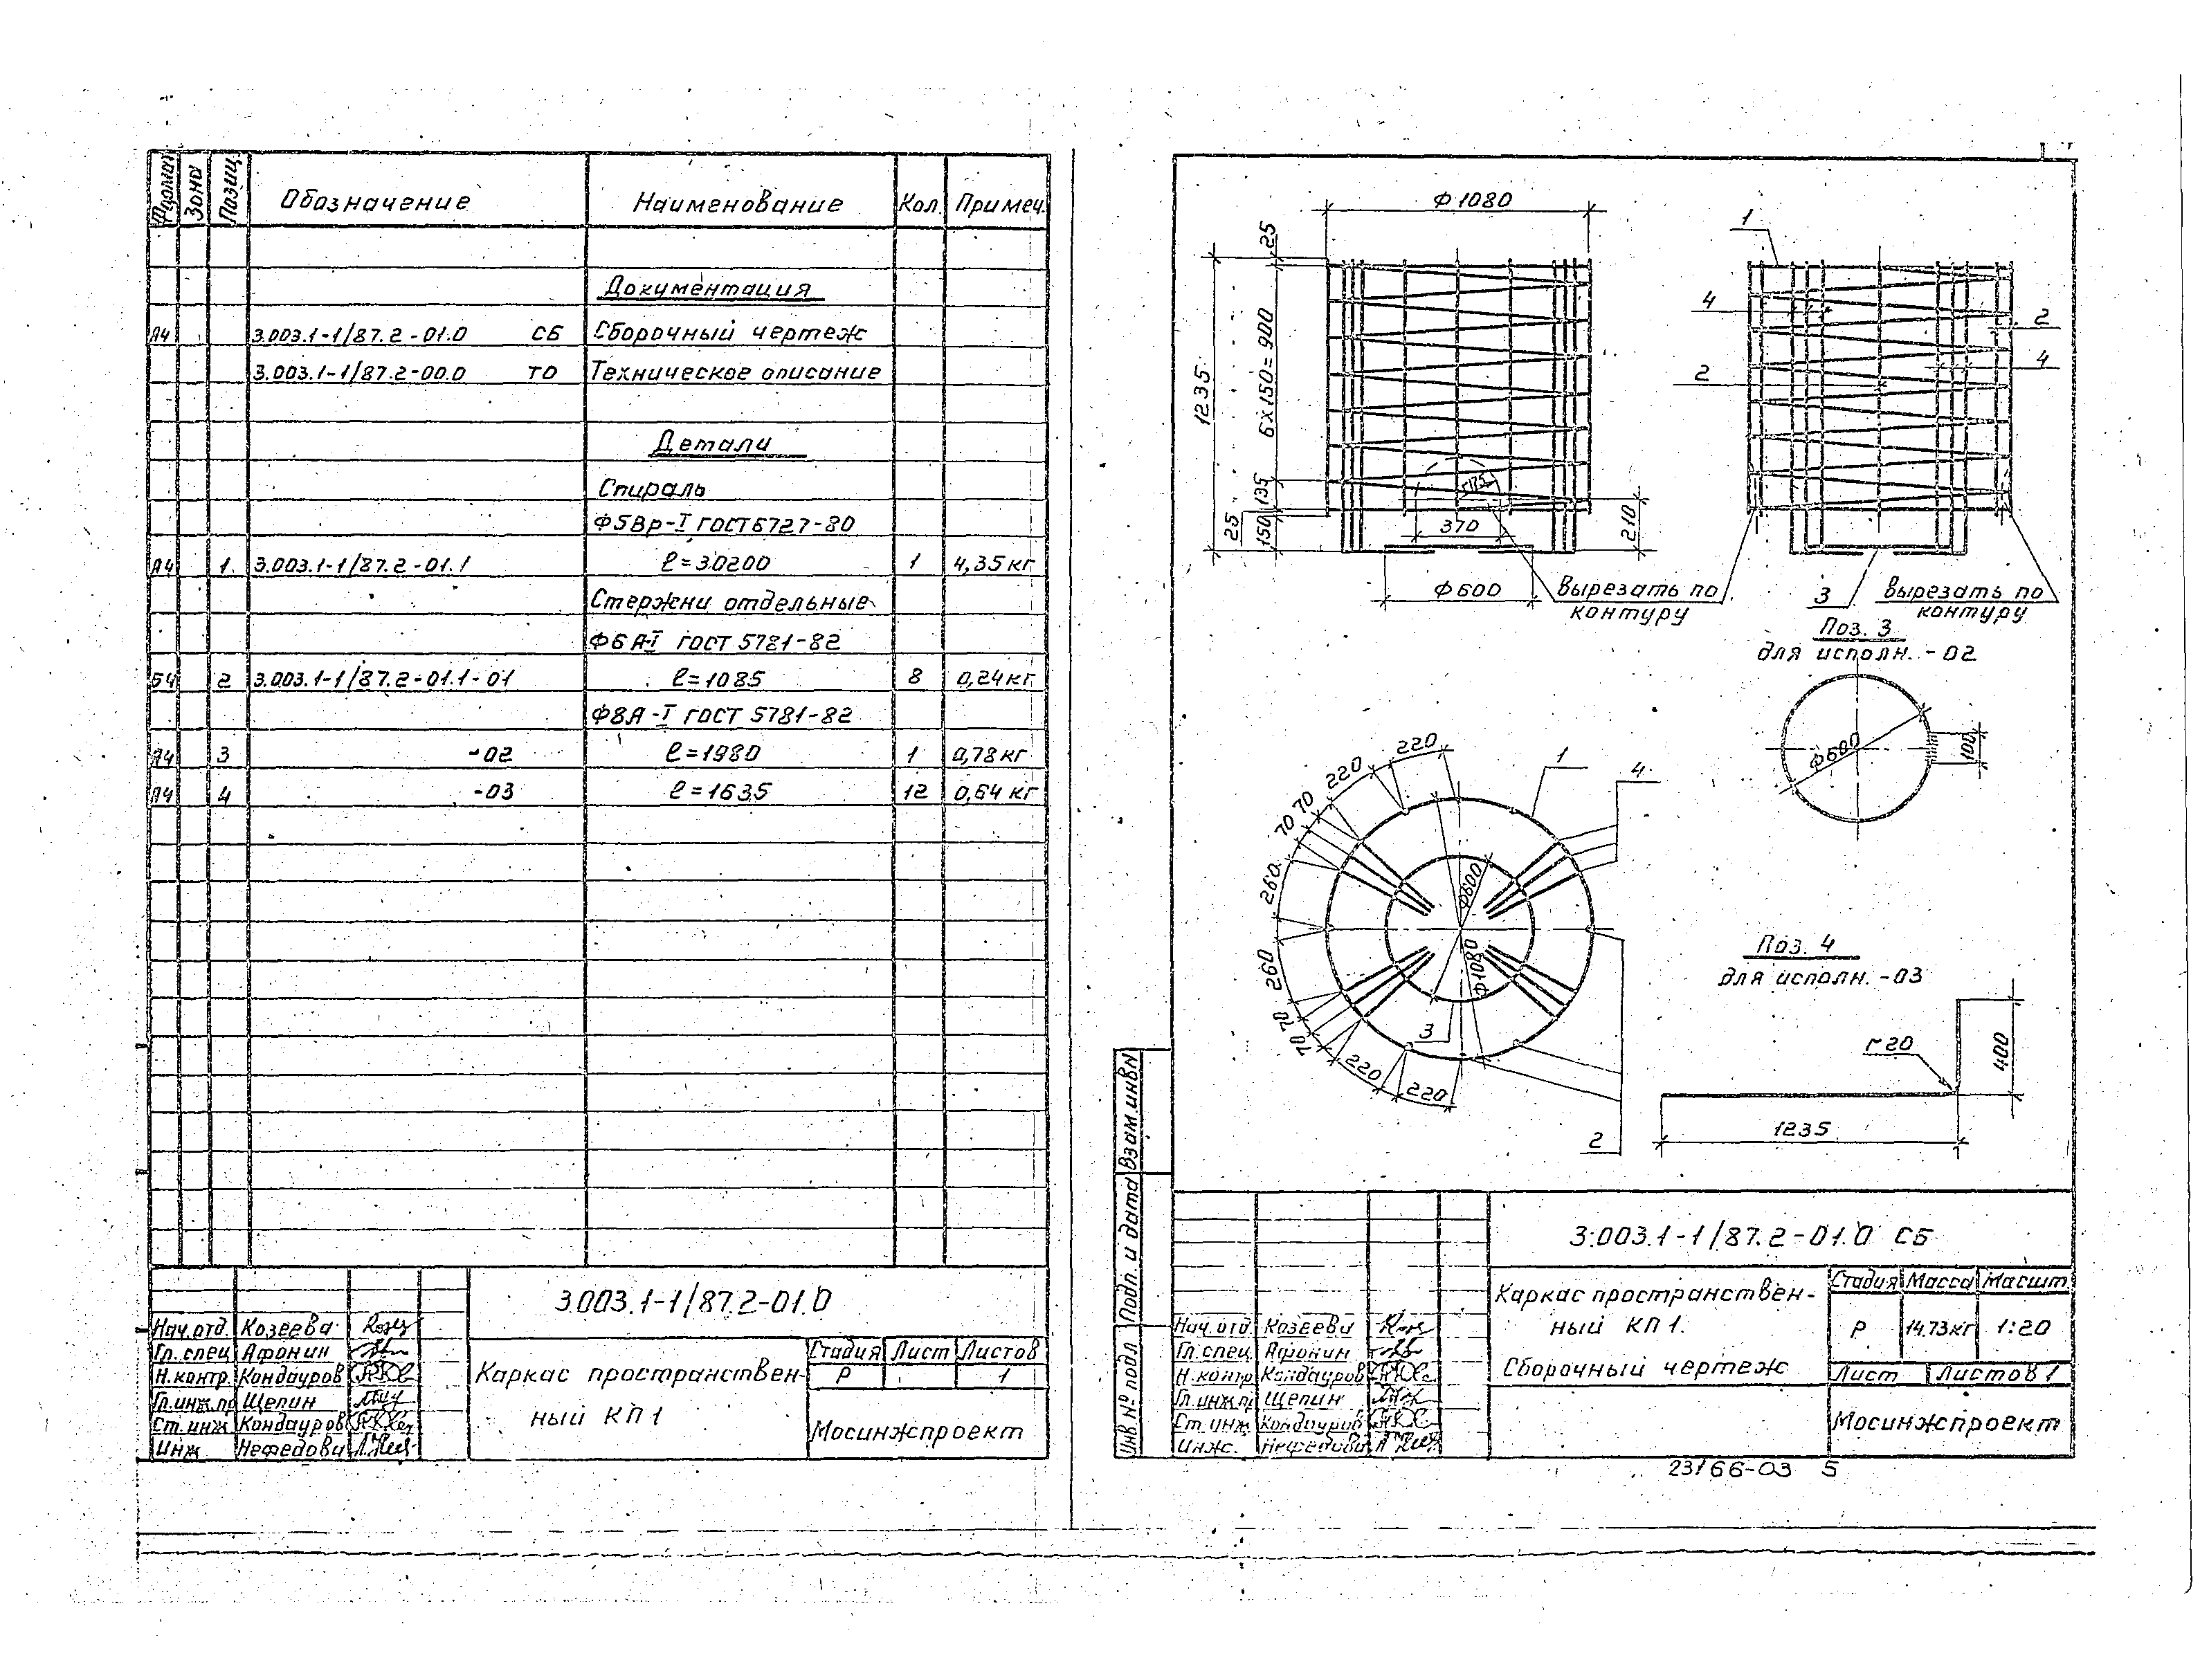 Формат Зона Позиц. Обозначение Наименование Кол. Примеч.
Документация
А4 3.003.1-1/87.2-01.0 СБ Сборочный чертеж
3.003.1-1/87.2-00.0 ТО Техническое описание
Детали
Спираль
Ф5Вр-I ГОСТ 6727-80
А4 1. 3.003.1-1/87.2-01.1 ℓ=30200 1 4,35 кг
Стержни отдельные
Ф6А-I ГОСТ 5781-82
Б4 2 3.003.1-1/87.2-01.1-01 ℓ=1085 8 0,24 кг
Ф8А-I ГОСТ 5781-82
А4 3 -02 ℓ=1980 1 0,78 кг
А4 4 -03 ℓ=1635 12 0,64 кг
3.003.1-1/87.2-01.0
Нач.отд. Козеева
Гл.спец Афонин
Н.контр. Кондауров
Гл.инж.пр Щепин
Ст.инж Кондауров
Инж Нефедова
Каркас пространствен-
ный КП1
Стадия Лист Листов
Р 1
Мосинжпроект
Ф1080
25
1235
6х150=900
135
25
150
370
210
Ф600
Вырезать по
контуру
1
4
2
2
4
3
Вырезать по
контуру
Поз. 3
для исполн. -02
Ф600
100
220
220
70
70
260
260
70
70
220
220
1
4
Ф600
Ф1080
3
2
Поз. 4
для исполн. -03
r20
400
1235
Взам.инв№
Подп. и дата
Инв № подл
3.003.1-1/87.2-01.0 СБ
Нач.отд Козеева
Гл.спец Афонин
Н.контр Кондауров
Гл.инж.п Щепин
Ст.инж Кондауров
Инж. Нефедова
Каркас пространствен-
ный КП1.
Сборочный чертеж
Стадия Масса Масшт.
Р 14.73кг 1:20
Лист Листов 1
Мосинжпроект
23166-03 5